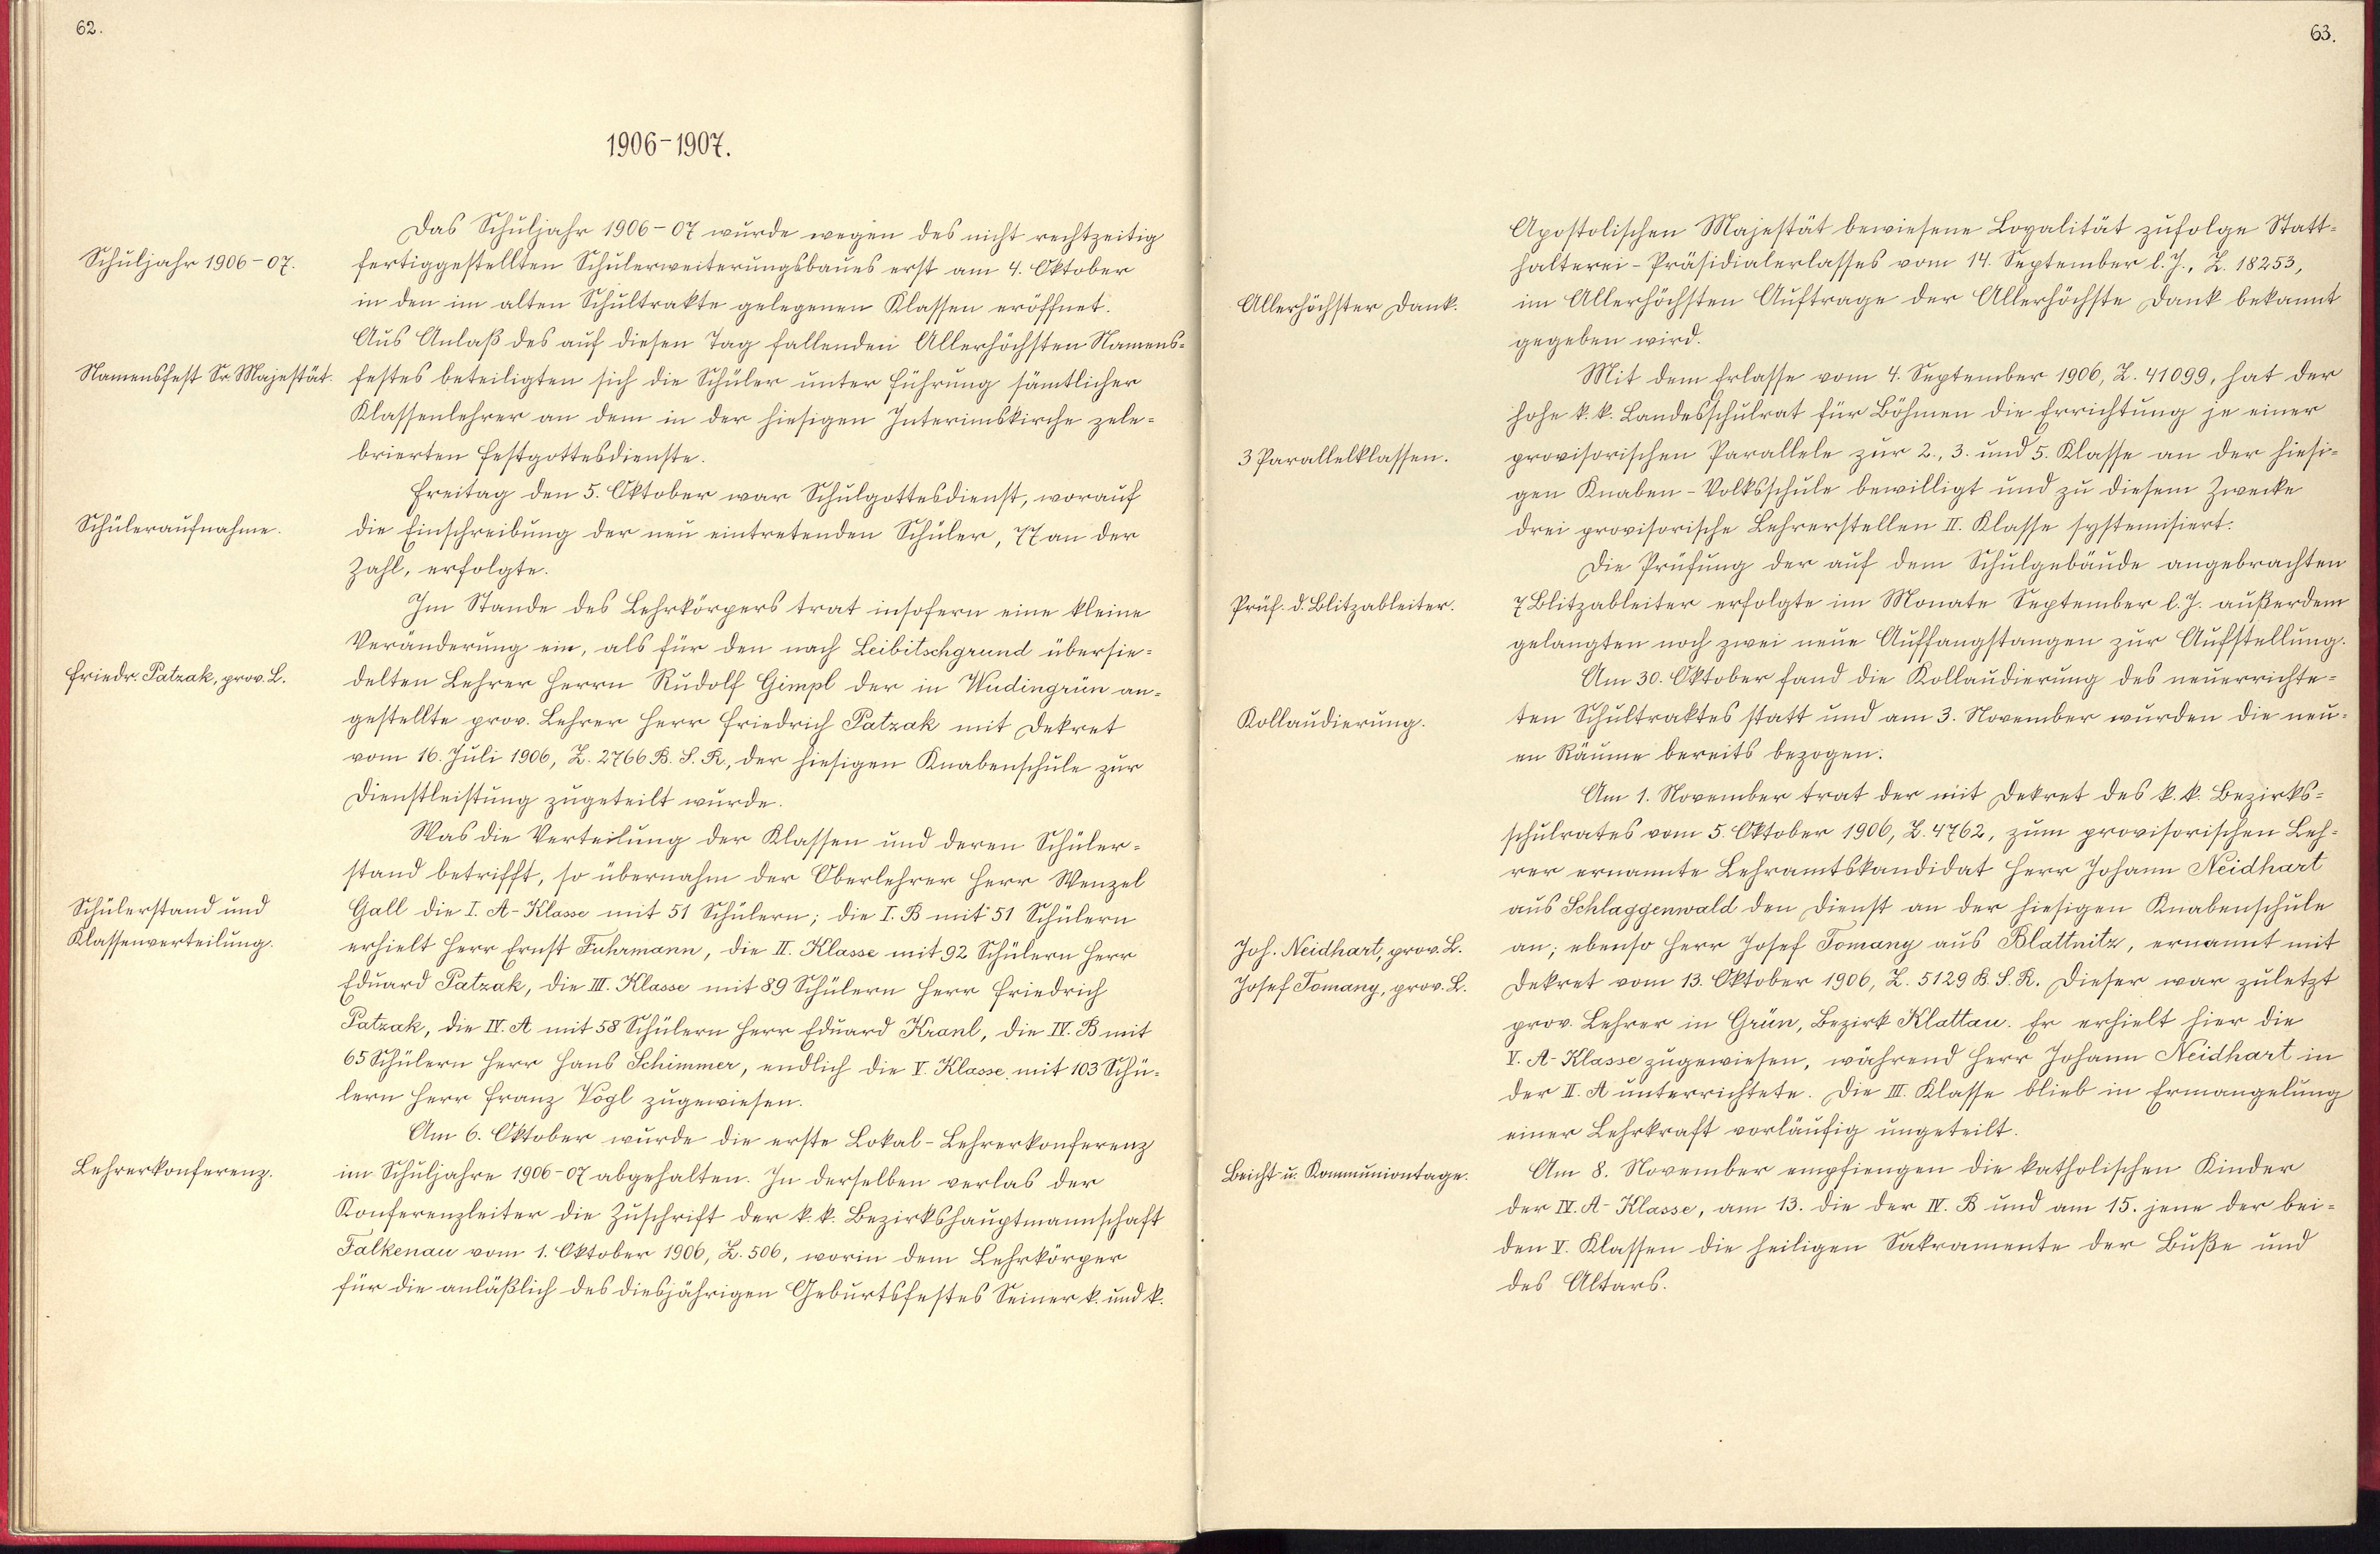 62.
1906-1907.
Das Schuljahr 1906-07 wurde wegen des nicht rechtzeitig
Schuljahr 1906-07.
fertiggestellten Schulerweiterungsbaues erst am 4. Oktober
in den im alten Schultrakte gelegenen Klassen eröffnet.
Aus Anlaß des auf diesen Tag fallenden Allerhöchsten Namens-
Namensfest Sr. Majestät.
festes beteiligten sich die Schüler unter Führung sämtlicher
Klassenlehrer an dem in der hiesigen Interimskirche zele-
brierten Festgottesdienste.
Freitag den 5. Oktober war Schulgottesdienst, worauf
Schüleraufnahme.
die Einschreibung der neu eintretenden Schüler, 77 an der
Zahl, erfolgte.
Im Stande des Lehrkörpers trat insofern eine kleine
Veränderung ein, als für den nach Leibitschgrund übersie-
Friedr. Patzak, prov. L.
delten Lehrer Herrn Rudolf Gimpl der in Wudingrün an-
gestellte prov. Lehrer Herr Friedrich Patzak mit Dekret
vom 16. Juli 1906, Z. 2766 B. S. R., der hiesigen Knabenschule zur
Dienstleistung zugeteilt wurde.
Was die Verteilung der Klassen und deren Schüler-
stand betrifft, so übernahm der Oberlehrer Herr Wenzel
Schülerstand und
Gall die I. A-Klasse mit 51 Schülern; die I. B mit 51 Schülern
Klassenverteilung.
erhielt Herr Ernst Fuhrmann, die II. Klasse mit 92 Schülern Herr
Eduard Patzak, die III. Klasse mit 89 Schülern Herr Friedrich
Patzak, die IV. A mit 58 Schülern Herr Eduard Kranl, die IV. B mit
65 Schülern Herr Hans Schimmer, endlich die V. Klasse mit 103 Schü-
lern Herr Franz Vogl zugewiesen.
Am 6. Oktober wurde die erste Lokal-Lehrerkonferenz
Lehrerkonferenz.
im Schuljahre 1906-07 abgehalten. In derselben verlas der
Konferenzleiter die Zuschrift der k. k. Bezirkshauptmannschaft
Falkenau vom 1. Oktober 1906, Z. 506, worin dem Lehrkörper
für die anläßlich des diesjährigen Geburtsfestes Seiner k. und k.
63.
Apostolischen Majestät bewiesene Loyalität zufolge Statt-
halterei-Präsidialerlasses vom 14. September l. J., Z. 18253,
Allerhöchster Dank.
im Allerhöchsten Auftrage der Allerhöchste Dank bekannt
gegeben wird.
Mit dem Erlasse vom 4. September 1906, Z. 41099, hat der
hohe k. k. Landesschulrat für Böhmen die Errichtung je einer
3 Parallelklassen.
provisorischen Parallele zur 2., 3. und 5. Klasse an der hiesi-
gen Knaben-Volksschule bewilligt und zu diesem Zwecke
drei provisorische Lehrerstellen II. Klasse systemisiert.
Die Prüfung der auf dem Schulgebäude angebrachten
Prüf. d. Blitzableiter.
7 Blitzableiter erfolgte im Monate September l. J. außerdem
gelangten noch zwei neue Auffangstangen zur Aufstellung.
Am 30. Oktober fand die Kollaudierung des neuerrichte-
Kollaudierung.
ten Schultraktes statt und am 3. November wurden die neu-
en Räume bereits bezogen.
Am 1. November trat der mit Dekret des k. k. Bezirks-
schulrates vom 5. Oktober 1906, Z. 4762, zum provisorischen Leh-
rer ernannte Lehramtskandidat Herr Johann Neidhart
aus Schlaggenwald den Dienst an der hiesigen Knabenschule
Joh. Neidhart, prov. L.
an; ebenso Herr Josef Tomany aus Blattnitz, ernannt mit
Josef Tomany, prov. L.
Dekret vom 13. Oktober 1906, Z. 5129 B. S. R. Dieser war zuletzt
prov. Lehrer in Grün, Bezirk Klattau. Er erhielt hier die
V. A-Klasse zugewiesen, während Herr Johann Neidhart in
der II. A unterrichtete. Die III. Klasse blieb in Ermangelung
einer Lehrkraft vorläufig ungeteilt.
Beicht- u. Kommuniontage.
Am 8. November empfiengen die katholischen Kinder
der IV. A-Klasse, am 13. die der IV. B und am 15. jene der bei-
den V. Klassen die heiligen Sakramente der Buße und
des Altars.